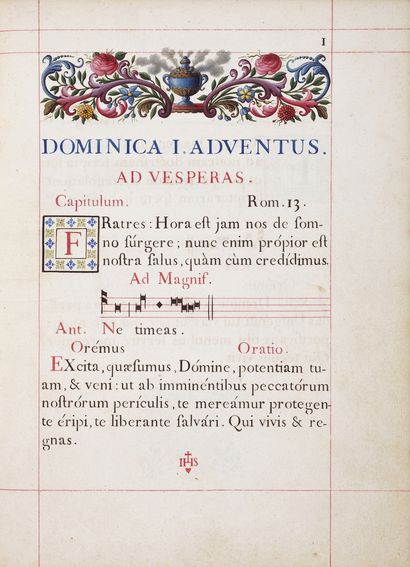 I
DOMINICA I. ADVENTUS.
AD VESPERAS.
Capitulum. Rom. 13.
FRatres: Hora est jam nos de som-
no súrgere; nunc enim própior est
nostra salus, quàm cùm credídimus.
Ad Magnif.
Ant. Ne timeas.
Orémus Oratio.
EXcita, quæsumus, Dómine, potentiam tu-
am, & veni: ut ab imminéntibus peccatórum
nostrórum perículis, te mereámur protegen-
te éripi, te liberante salvári. Qui vivis & re-
gnas.
IHS